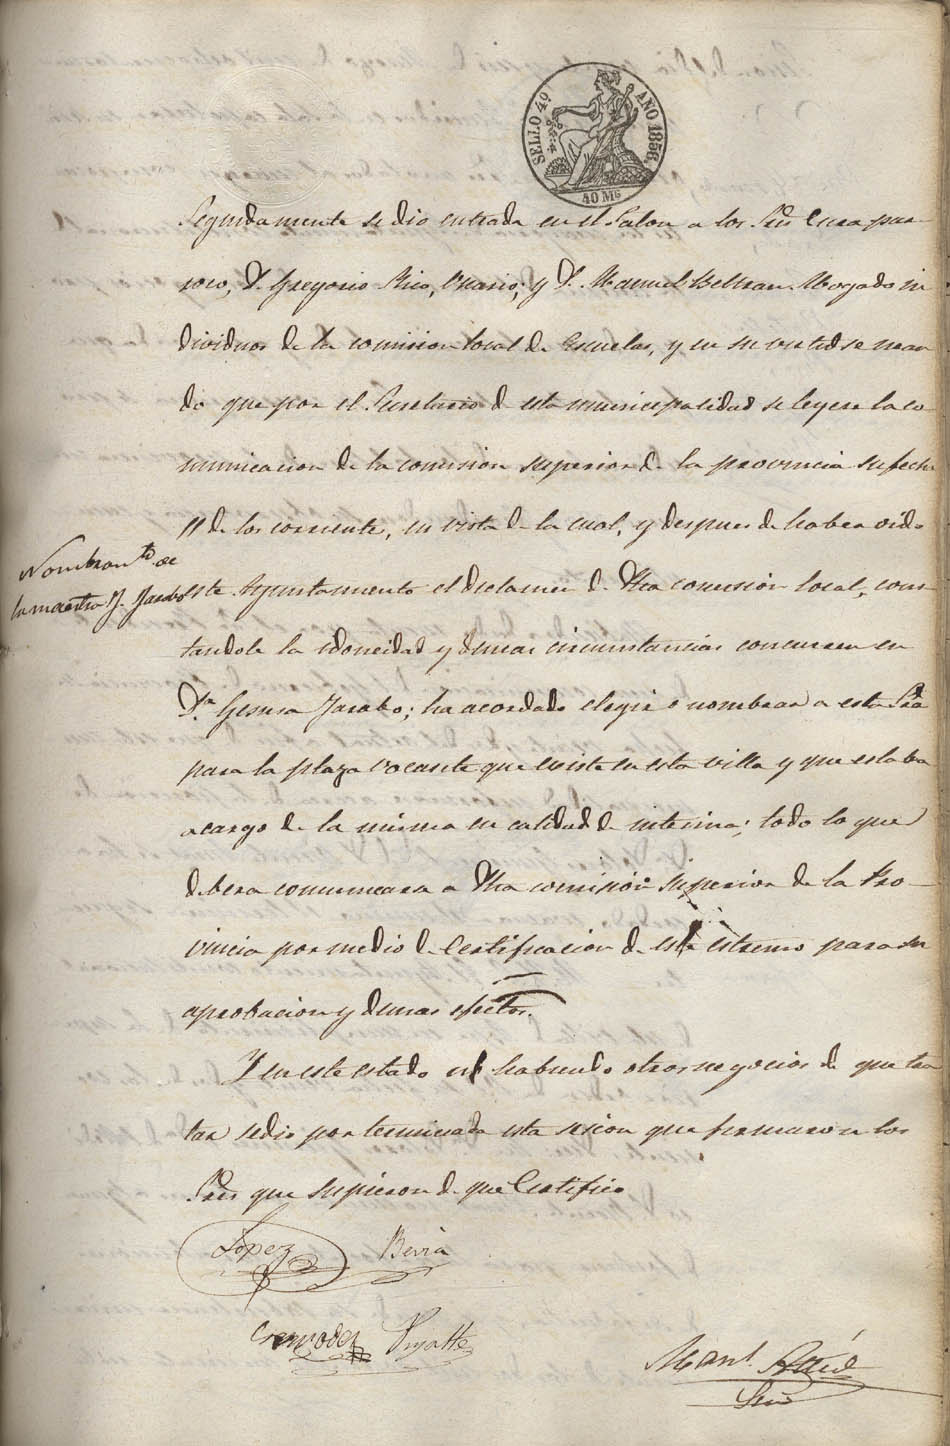 SELLO 4º. AÑO 1856.
40 Ms
Seguidamente se dio entrada en el Salon a los Sres Cura par-
roco, D. Gregorio Rico, Vicario; y D. Manuel Beltran Abogado in
dividuos de la comision local de Escuelas, y en su virtud se man
do que por el Secretario de esta municipalidad se leyese la co-
municacion de la comision superior de la provincia su fecha
11 de los corriente, en vista de la cual, y despues de haber oido
Nombramto de
la maestra J. Jarabo
este Ayuntamiento el dictamen de dha comision local, cons-
tandole la idoneidad y demas circunstancias concurren en
Dª Genura Jarabo; ha acordado elegir o nombrar a esta Sra
para la plaza vacante que existe en esta villa y que estaba
a cargo de la misma en calidad de interina; todo lo que
debera comunicarse a dha comision superior de la Pro-
vincia por medio de Certificacion de este estremo para su
aprobacion y demas efectos.
Y en este estado no habiendo otros negocios de que tra
tar se dio por terminada esta sesion que firmaron los
Sres que supieron de que Certifico
Lopez Bevia
Cremades
Manl.
Srio